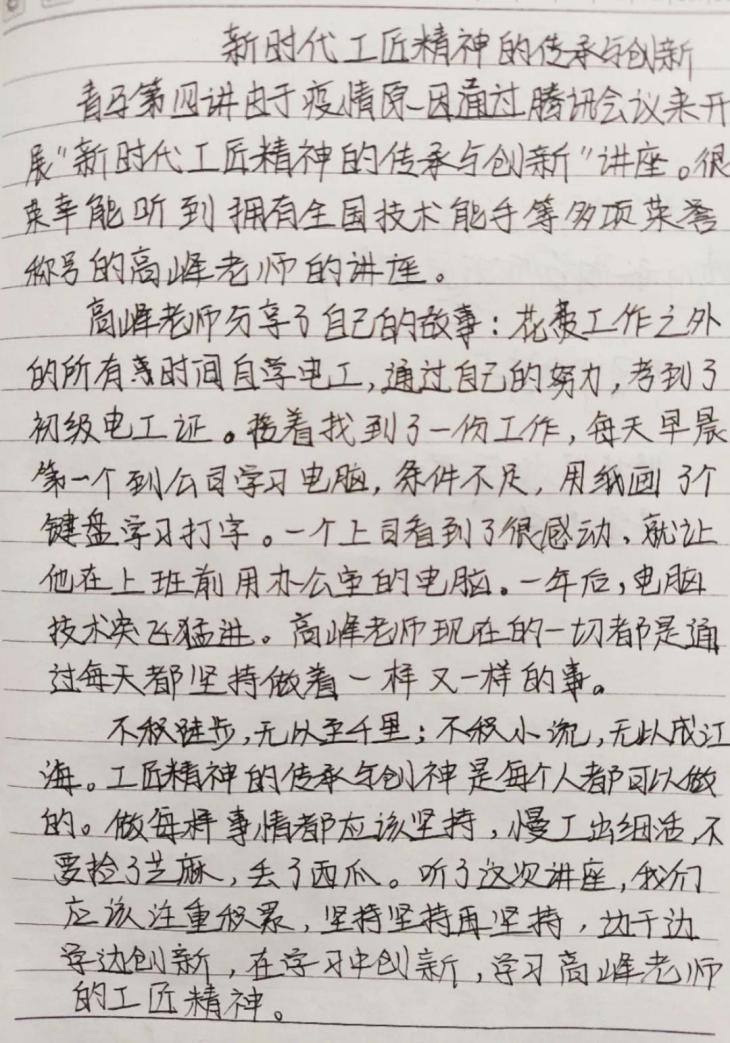 新时代工匠精神的传承与创新
青马第四讲由于疫情原因通过腾讯会议来开
展“新时代工匠精神的传承与创新”讲座。很
荣幸能听到拥有全国技术能手等多项荣誉
称号的高峰老师的讲座。
高峰老师分享了自己的故事：花费工作之外
的所有时间自学电工，通过自己的努力，考到了
初级电工证。接着找到了一份工作，每天早晨
第一个到公司学习电脑，条件不足，用纸画了个
键盘学习打字。一个上司看到了很感动、就让
他在上班前用办公室的电脑。一年后，电脑
技术突飞猛进。高峰老师现在的一切都是通
过每天都坚持做着一样又一样的事。
不积跬步，无以至千里；不积小流，无以成江
海。工匠精神的传承与创神是每个人都可以做
的。做每样事情都应该坚持，慢工出细活，不
要捡了芝麻，丢了西瓜。听了这次讲座，我们
应该注重积累，坚持坚持再坚持，边干边
学边创新，在学习中创新，学习高峰老师
的工匠精神。